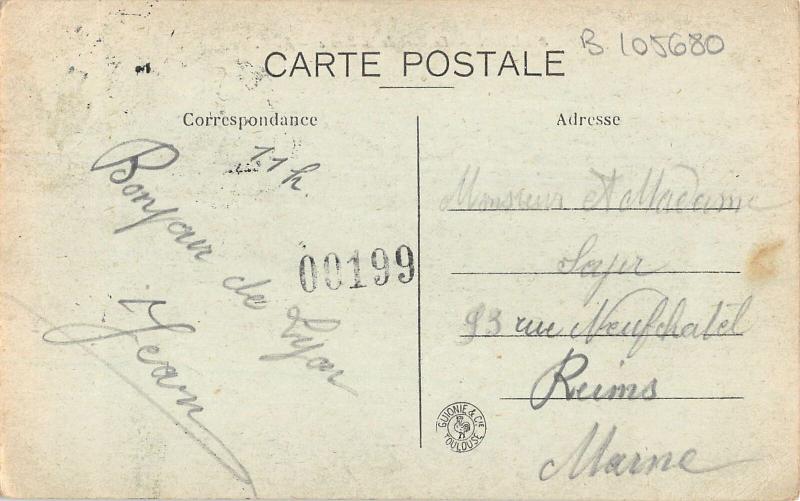 B 105680
CARTE POSTALE
Correspondance
11 h.
Bonjour de Lyon
Jean
00199
Adresse
Monsieur et Madame
93 rue Neufchatel
Reims
Marne
GUIONIE & CIE
TOULOUSE